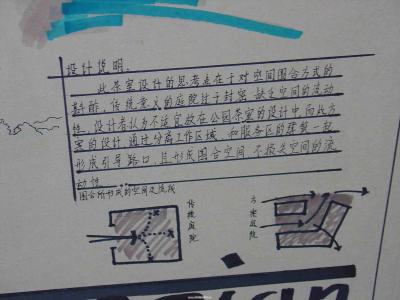 设计说明.
此茶室设计的思考点在于对空间围合方式的
斟酌,传统意义的庭院过于封密,缺乏空间的流动
性,设计者认为不适宜放在公园茶室的设计中,而此方
案的设计,通过分离工作区域,和服务区的建筑一起
形成引导路口,且形成围合空间,不损失空间的流
动性.
围合所形成的空间及流线
传统庭院
方案庭院